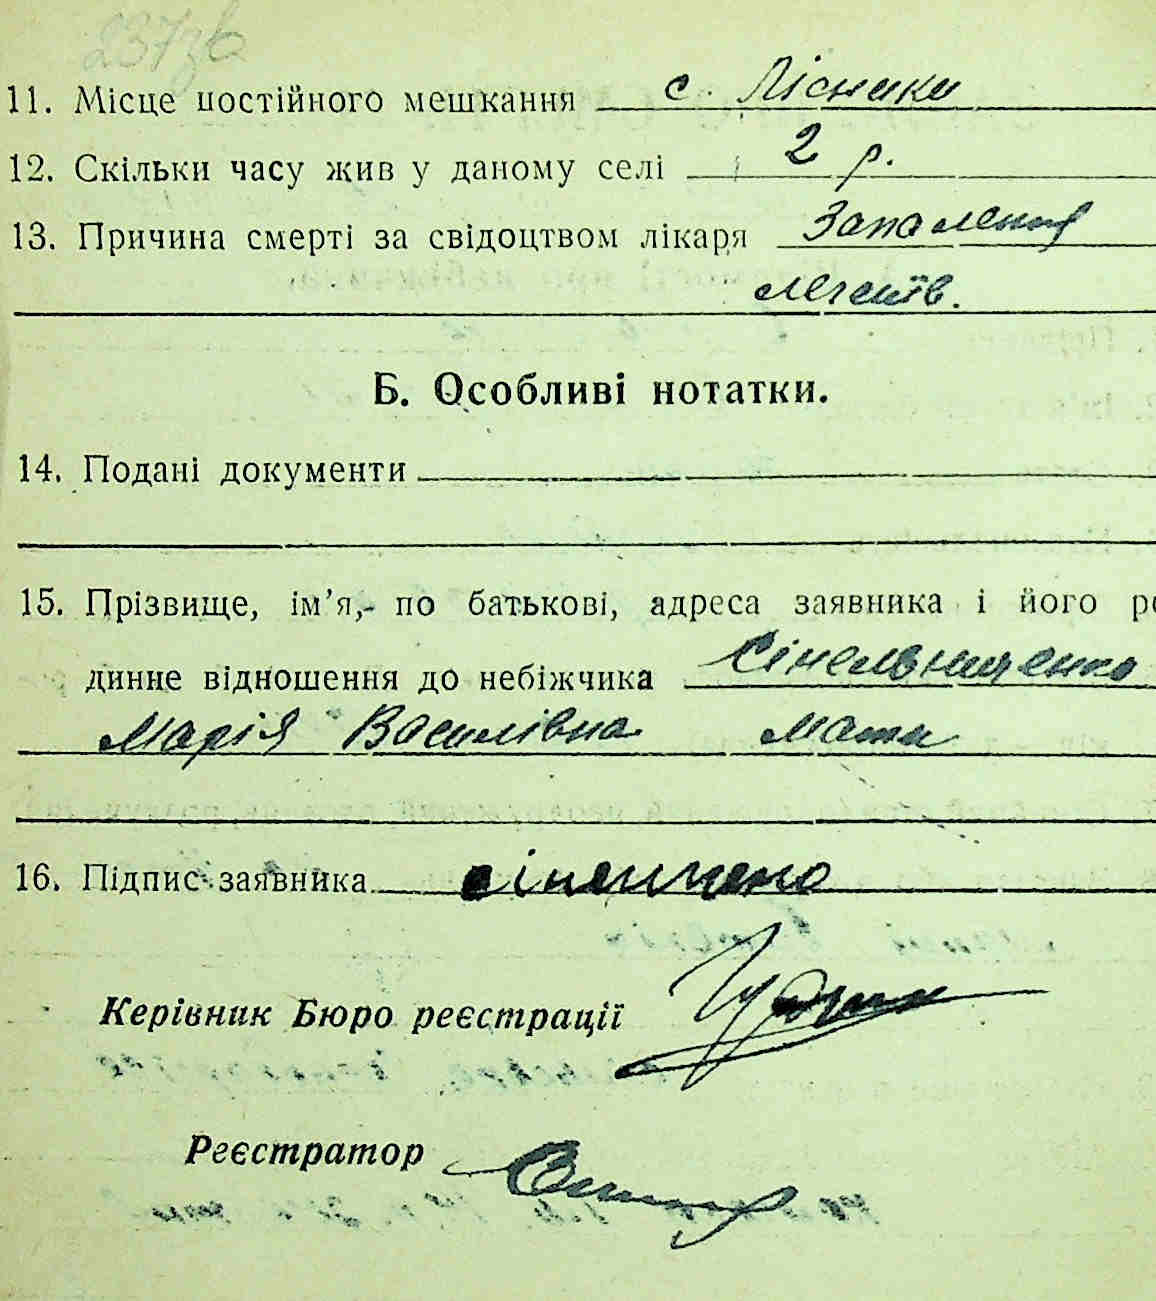 237зв
11. Місце постійного мешкання с. Лісники
12. Скільки часу жив у даному селі 2 р.
13. Причина смерті за свідоцтвом лікаря Запалення
легенів.
Б. Особливі нотатки.
14. Подані документи
15. Прізвище, ім’я, по батькові, адреса заявника і його ро
динне відношення до небіжчика Сінельниченко
Марія Василівна мати
16. Підпис заявника
Керівник Бюро реєстрації
Реєстратор